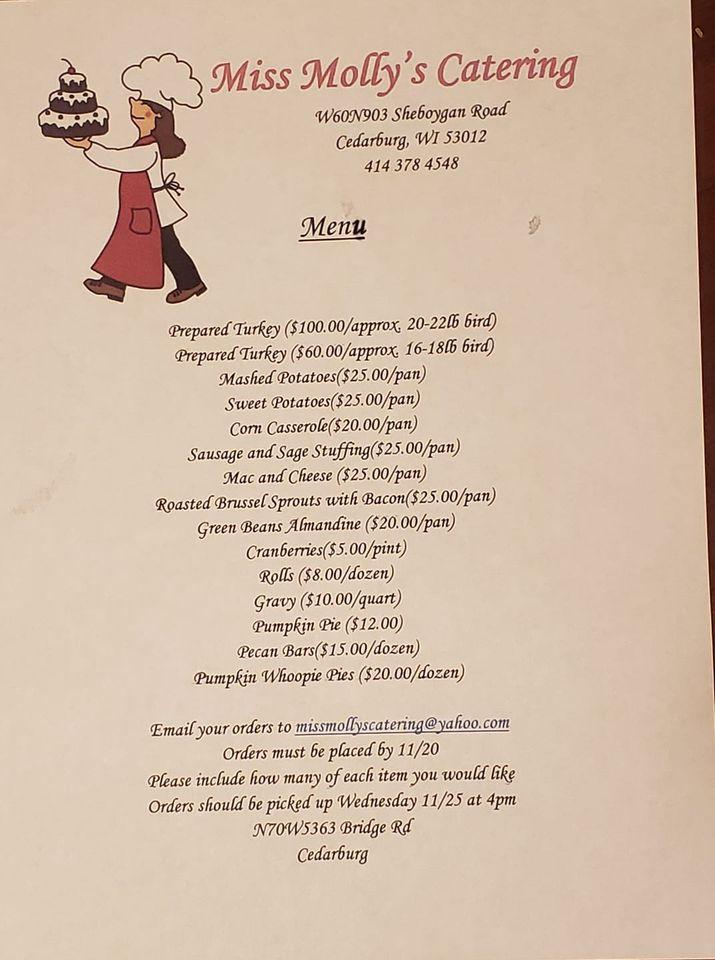 Miss Molly's Catering
W60N903 Sheboygan Road
Cedarburg, WI 53012
414 378 4548
Menu
Prepared Turkey ($100.00/approx. 20-22lb bird)
Prepared Turkey ($60.00/approx. 16-18lb bird)
Mashed Potatoes($25.00/pan)
Sweet Potatoes($25.00/pan)
Corn Casserole($20.00/pan)
Sausage and Sage Stuffing($25.00/pan)
Mac and Cheese ($25.00/pan)
Roasted Brussel Sprouts with Bacon($25.00/pan)
Green Beans Almandine ($20.00/pan)
Cranberries($5.00/pint)
Rolls ($8.00/dozen)
Gravy ($10.00/quart)
Pumpkin Pie ($12.00)
Pecan Bars($15.00/dozen)
Pumpkin Whoopie Pies ($20.00/dozen)
Email your orders to missmollyscatering@yahoo.com
Orders must be placed by 11/20
Please include how many of each item you would like
Orders should be picked up Wednesday 11/25 at 4pm
N70W5363 Bridge Rd
Cedarburg